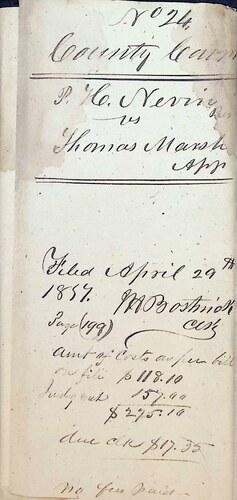 No 24.
County Cour
P. H. Nevin
vs
Thomas Marsh
App
Filed April 29th
1857. M Bostwick
Clk
Page (199)
amt of Costs as per bill
on file $118.10
Judgment 157.00
$275.10
due clk $17.35
no fees paid